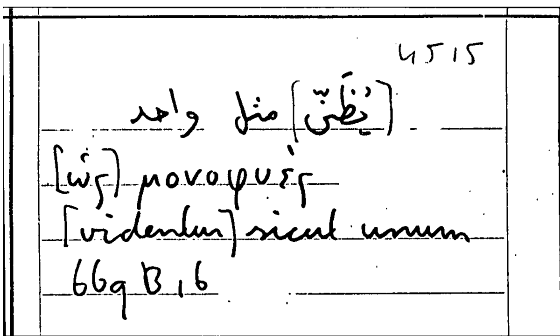 4515
[يُظَنّ] مثل واحد
[ὡς] μονοφυές
[videntur] sicut unum
669 B, 6